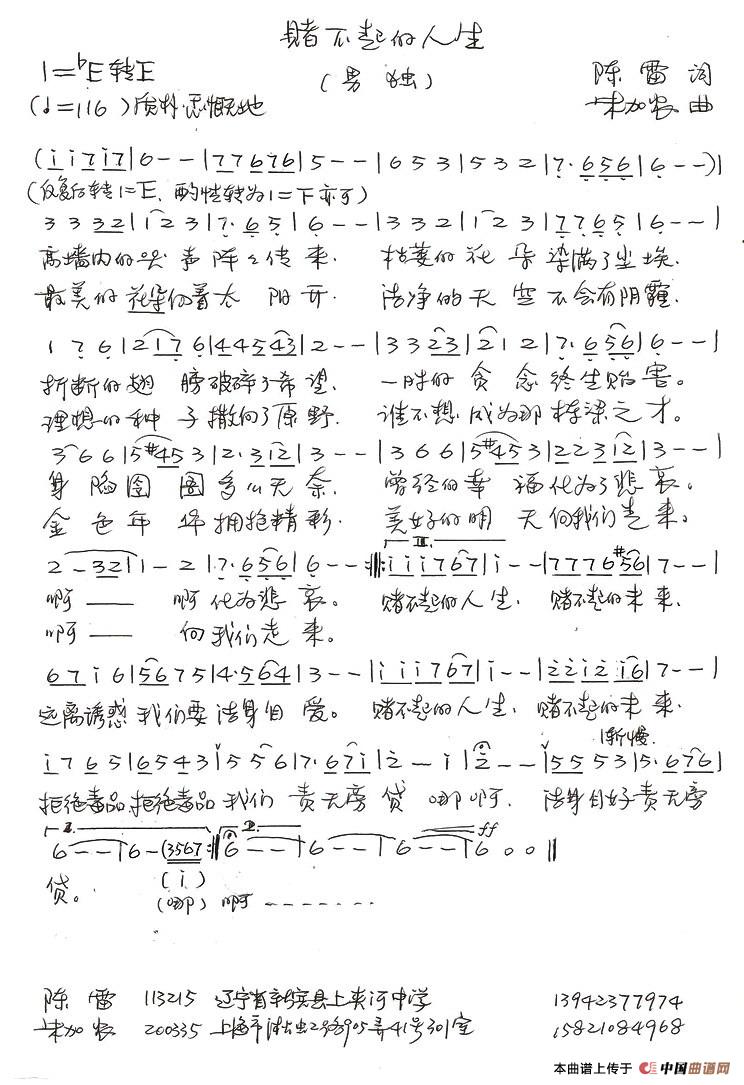 赌不起的人生
1=♭E转E
(男独)
陈雷 词
朱加农 曲
(♩=116)质朴.感慨地
(i i 7 i 7 | 6 - - | 7 7 6 7 6 | 5 - - | 6 5 3 | 5 3 2 | 7· 6 5 6 | 6 - - ) |
(反复后转1=E, 酌性转为1=F亦可)
3 3 3 2 | 1 2 3 | 7· 6 5 | 6 - - | 3 3 2 | 1 2 3 | 7 7 6 5 | 6 - - |
高墙内的哭声阵々传来. 枯萎的花朵染满了尘埃.
最美的花朵向着太阳开. 洁净的天空不会有阴霾.
1 7 6 | 2 1 7 6 | 4 4 5 4 3 | 2 - - | 3 3 2 3 | 2 1 2 | 7· 6 5 6 | 6 - - |
折断的翅膀破碎了希望. 一时的贪念终生贻害。
理想的种子撒向了原野. 谁不想成为那栋梁之才。
3 6 6 | 5 #4 5 3 | 2· 3 1 2 | 3 - - | 3 6 6 | 5 #4 5 3 | 2 2 3 1 2 | 3 - - |
身陷囹圄多么无奈. 曾经的幸福化为了悲哀。
金色年华拥抱精彩. 美好的明天向我们走来。
2 - 3 2 | 1 - 2 | 7· 6 5 6 | 6 - - :‖: i i i 7 6 7 | i - - | 7 7 7 6 #5 6 | 7 - - |
啊—— 啊化为悲哀。 赌不起的人生. 赌不起的未来.
啊—— 向我们走来。
6 7 i 6 | 5 6 7 5 | 4· 5 6 4 | 3 - - | i i i 7 6 7 | i - - | 2 2 i 2 i 6 | 7 - - |
远离诱惑我们要洁身自爱。 赌不起的人生. 赌不起的未来.
渐慢.
i 7 6 5 | 6 5 4 3 | 5 5 6 | 7· 6 7 i | 2 - i | 2 - - | 5 5 5 3 | 5· 6 7 6 |
拒绝毒品拒绝毒品我们责无旁贷哪啊. 洁身自好责无旁
ff
6 - - | 6 - (3567 :‖ 6 - - | 6 - - | 6 - - | 6 0 0 ‖
贷。
(i)
(哪) 啊 - - - - - - -
陈雷 113215 辽宁省新宾县上夹河中学 13942377974
朱加农 200335 上海市 905弄41号301室 15821084968
本曲谱上传于 中国曲谱网